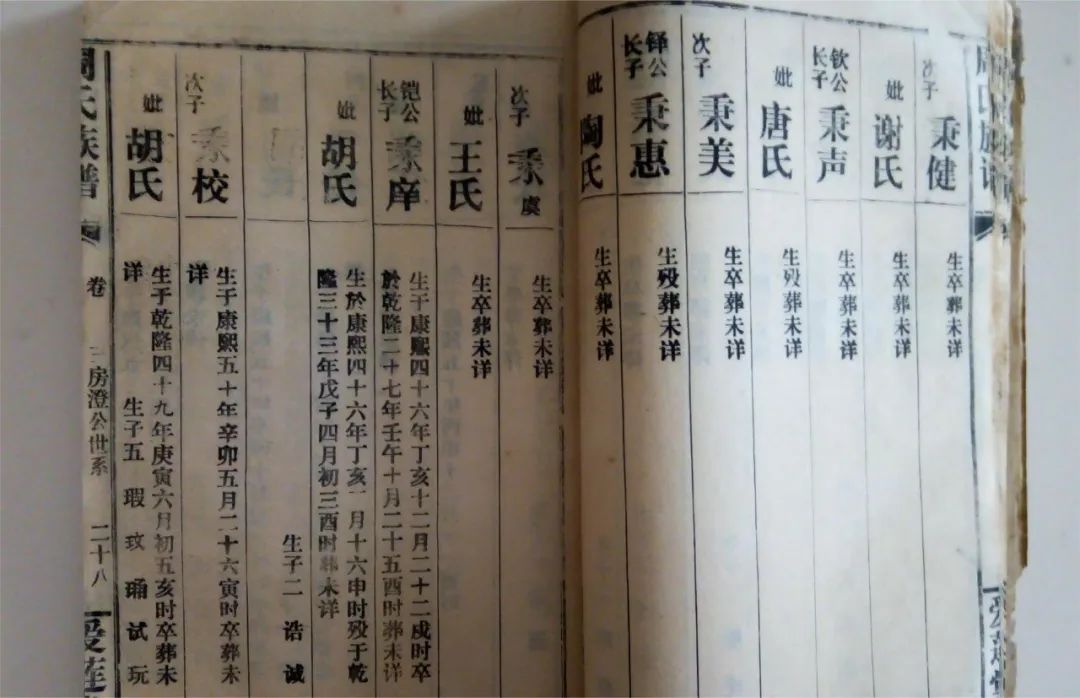 周氏族谱
次子 秉健 生卒葬未详
妣 谢氏 生卒葬未详
钦公长子 秉声 生卒葬未详
妣 唐氏 生殁葬未详
次子 秉美 生卒葬未详
铎公长子 秉惠 生殁葬未详
妣 陶氏 生卒葬未详
次子 秉虞 生卒葬未详
妣 王氏 生卒葬未详
铠公长子 秉庠 生于康熙四十六年丁亥十二月二十二戌时卒
於乾隆二十七年壬午十月二十五酉时葬未详
妣 胡氏 生於康熙四十六年丁亥一月十六申时殁于乾
隆三十三年戊子四月初三酉时葬未详
生子二 诰 诚
次子 秉校 生于康熙五十年辛卯五月二十六寅时卒葬未
详
妣 胡氏 生于乾隆四十九年庚寅六月初五亥时卒葬未
详 生子五 瑕 玟 琦 试 玩
周氏族谱 卷 三房澄公世系 二十八 爱莲